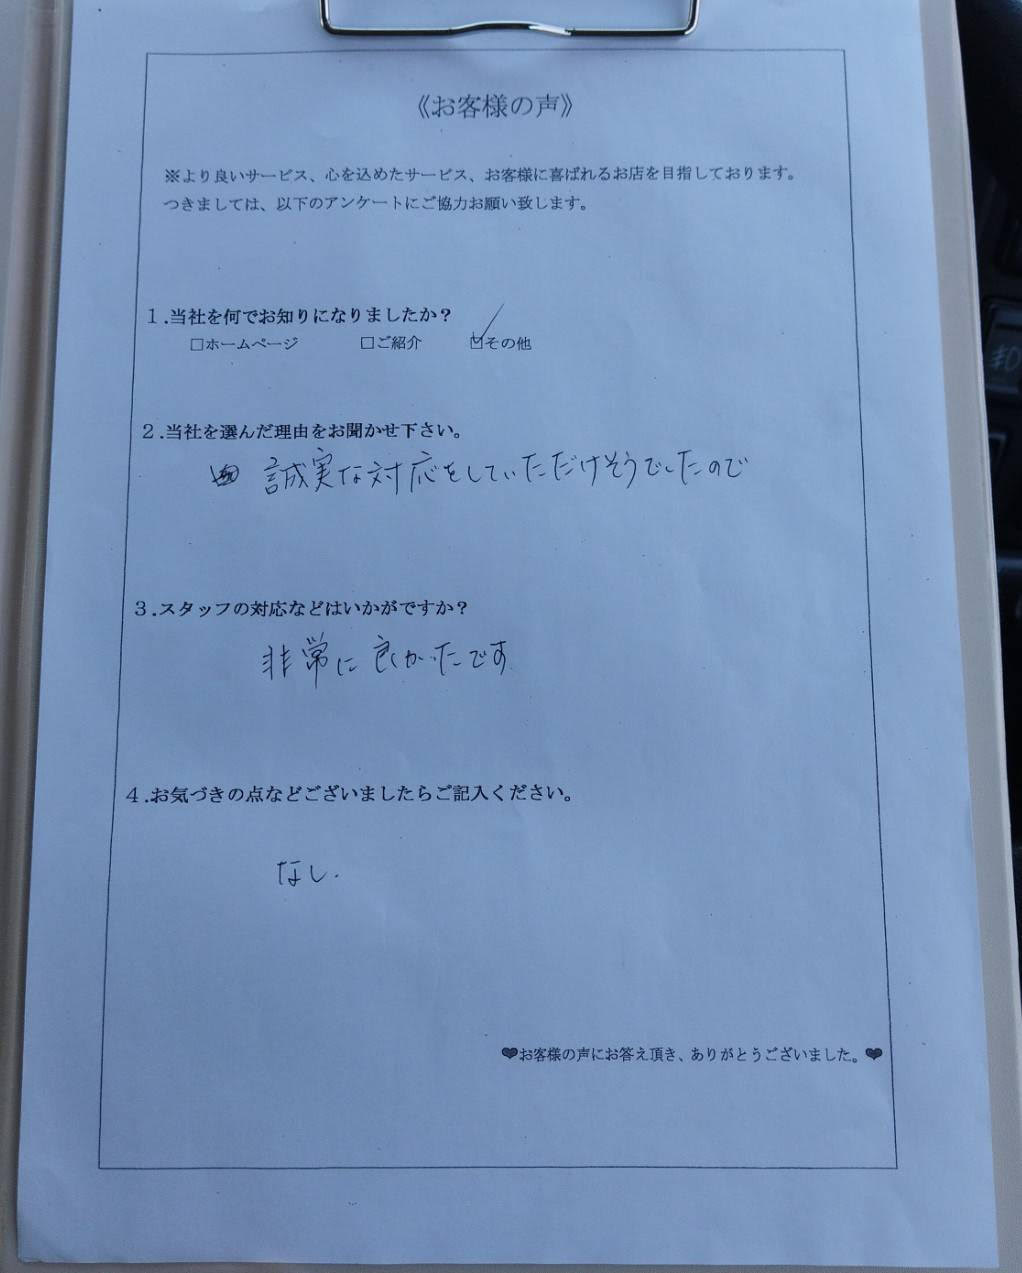 《お客様の声》
※より良いサービス、心を込めたサービス、お客様に喜ばれるお店を目指しております。
つきましては、以下のアンケートにご協力お願い致します。
1.当社を何でお知りになりましたか？
□ホームページ □ご紹介 ☑その他
2.当社を選んだ理由をお聞かせ下さい。
誠実な対応をしていただけそうでしたので
3.スタッフの対応などはいかがですか？
非常に良かったです
4.お気づきの点などございましたらご記入ください。
なし.
❤お客様の声にお答え頂き、ありがとうございました。❤